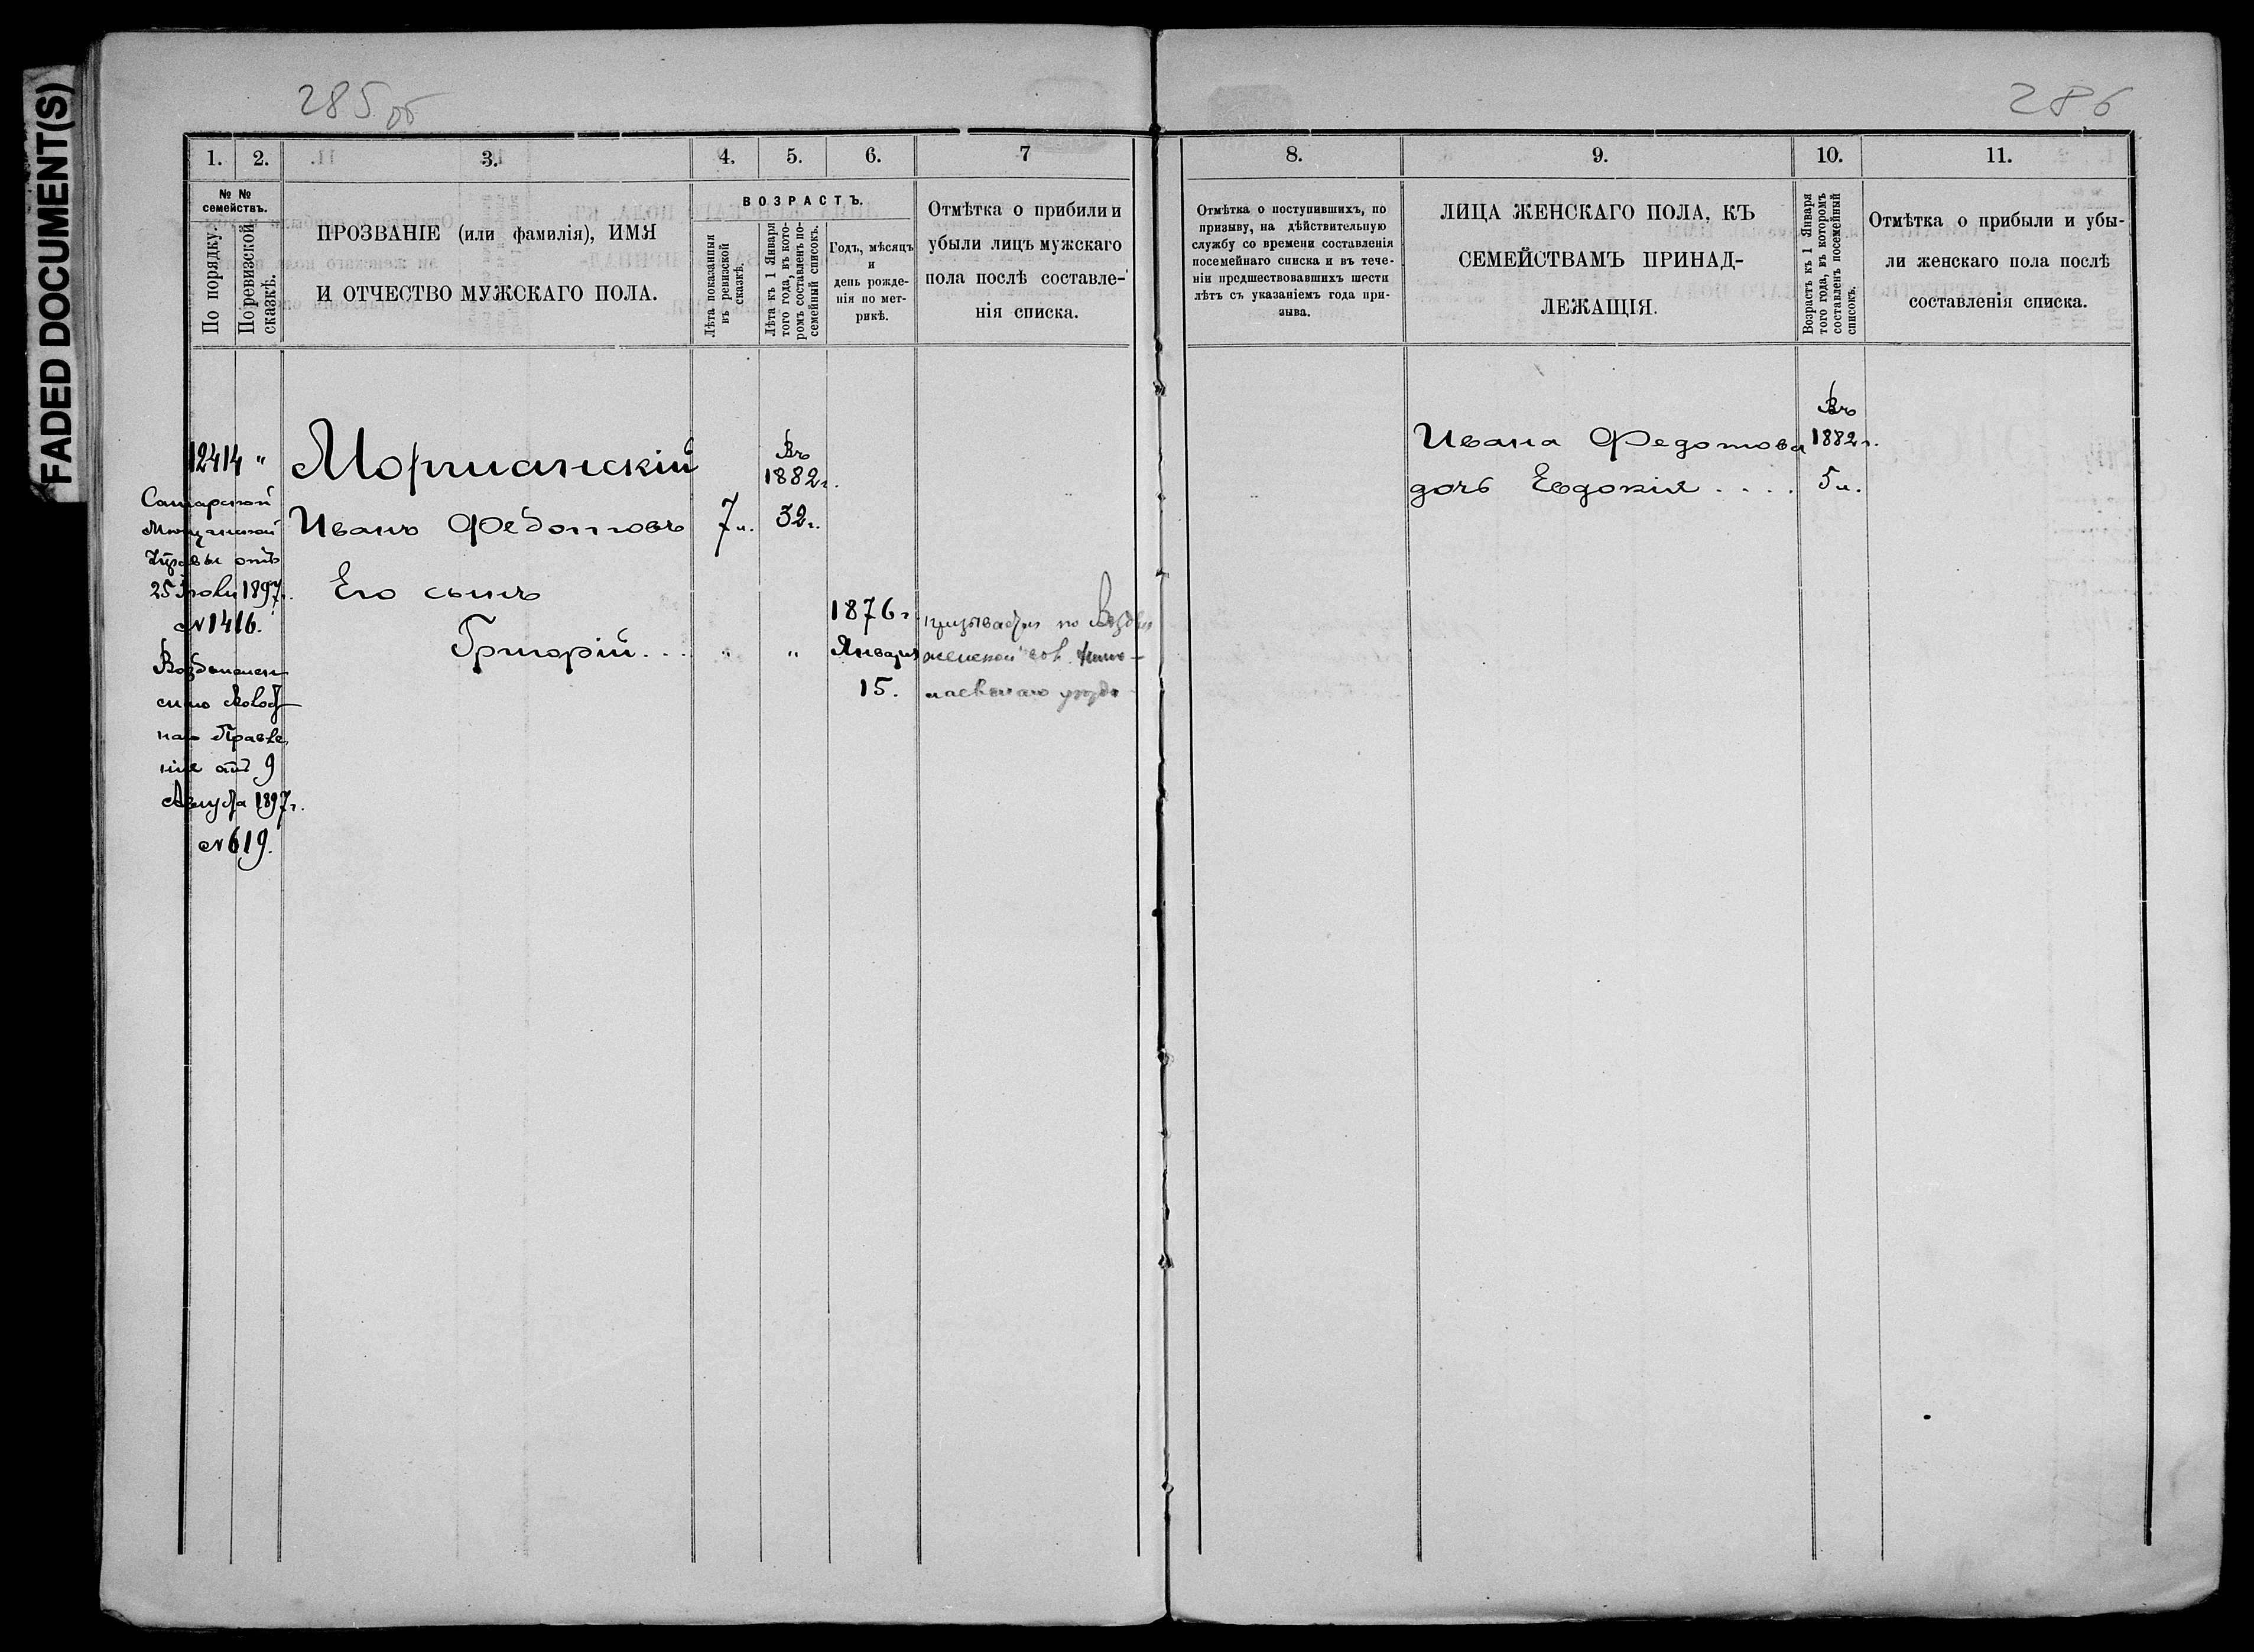 FADED DOCUMENT(S)
285об
286
1. 2. 3. 4. 5. 6. 7
№ № семействъ.
По порядку.
По ревизской сказкѣ.
ПРОЗВАНІЕ (или фамилія), ИМЯ
И ОТЧЕСТВО МУЖСКАГО ПОЛА.
ВОЗРАСТЪ.
Лѣта показанныя
въ ревизской
сказкѣ.
Лѣта къ 1 Января
того года, въ кото-
ромъ составленъ по-
семейный списокъ.
Годъ, мѣсяцъ
и
день рожде-
нія по мет-
рикѣ.
Отмѣтка о прибили и
убыли лицъ мужскаго
пола послѣ составле-
нія списка.
12414 „
Самарской
Мѣщанской
Управы отъ
25 Іюля 1897г.
№1416.
Воздвиженск
аго Волост
наго Правле
нія отъ 9
Августа 1897г.
№619.
Моршанскій
Въ
1882г.
Иванъ Федотовъ 7л. 32г.
Его сынъ
Григорій . . . „ „
1876г.
Января
15.
призывается по Воздви
женской вол. Нико-
лаевскаго уѣзда
8. 9. 10. 11.
Отмѣтка о поступившихъ, по
призыву, на дѣйствительную
службу со времени составленія
посемейнаго списка и въ тече-
ніи предшествовавшихъ шести
лѣтъ съ указаніемъ года при-
зыва.
ЛИЦА ЖЕНСКАГО ПОЛА, КЪ
СЕМЕЙСТВАМЪ ПРИНАД-
ЛЕЖАЩІЯ.
Возрастъ къ 1 Января
того года, въ которомъ
составленъ посемейный
списокъ.
Отмѣтка о прибыли и убы-
ли женскаго пола послѣ
составленія списка.
Въ
Ивана Федотова 1882г.
дочь Евдокія . . . . 5л.